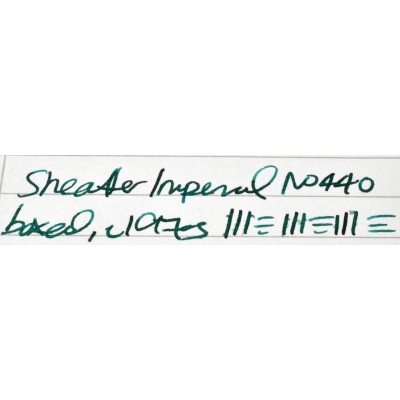 Sheaffer Imperial No 440
boxed, c1970s